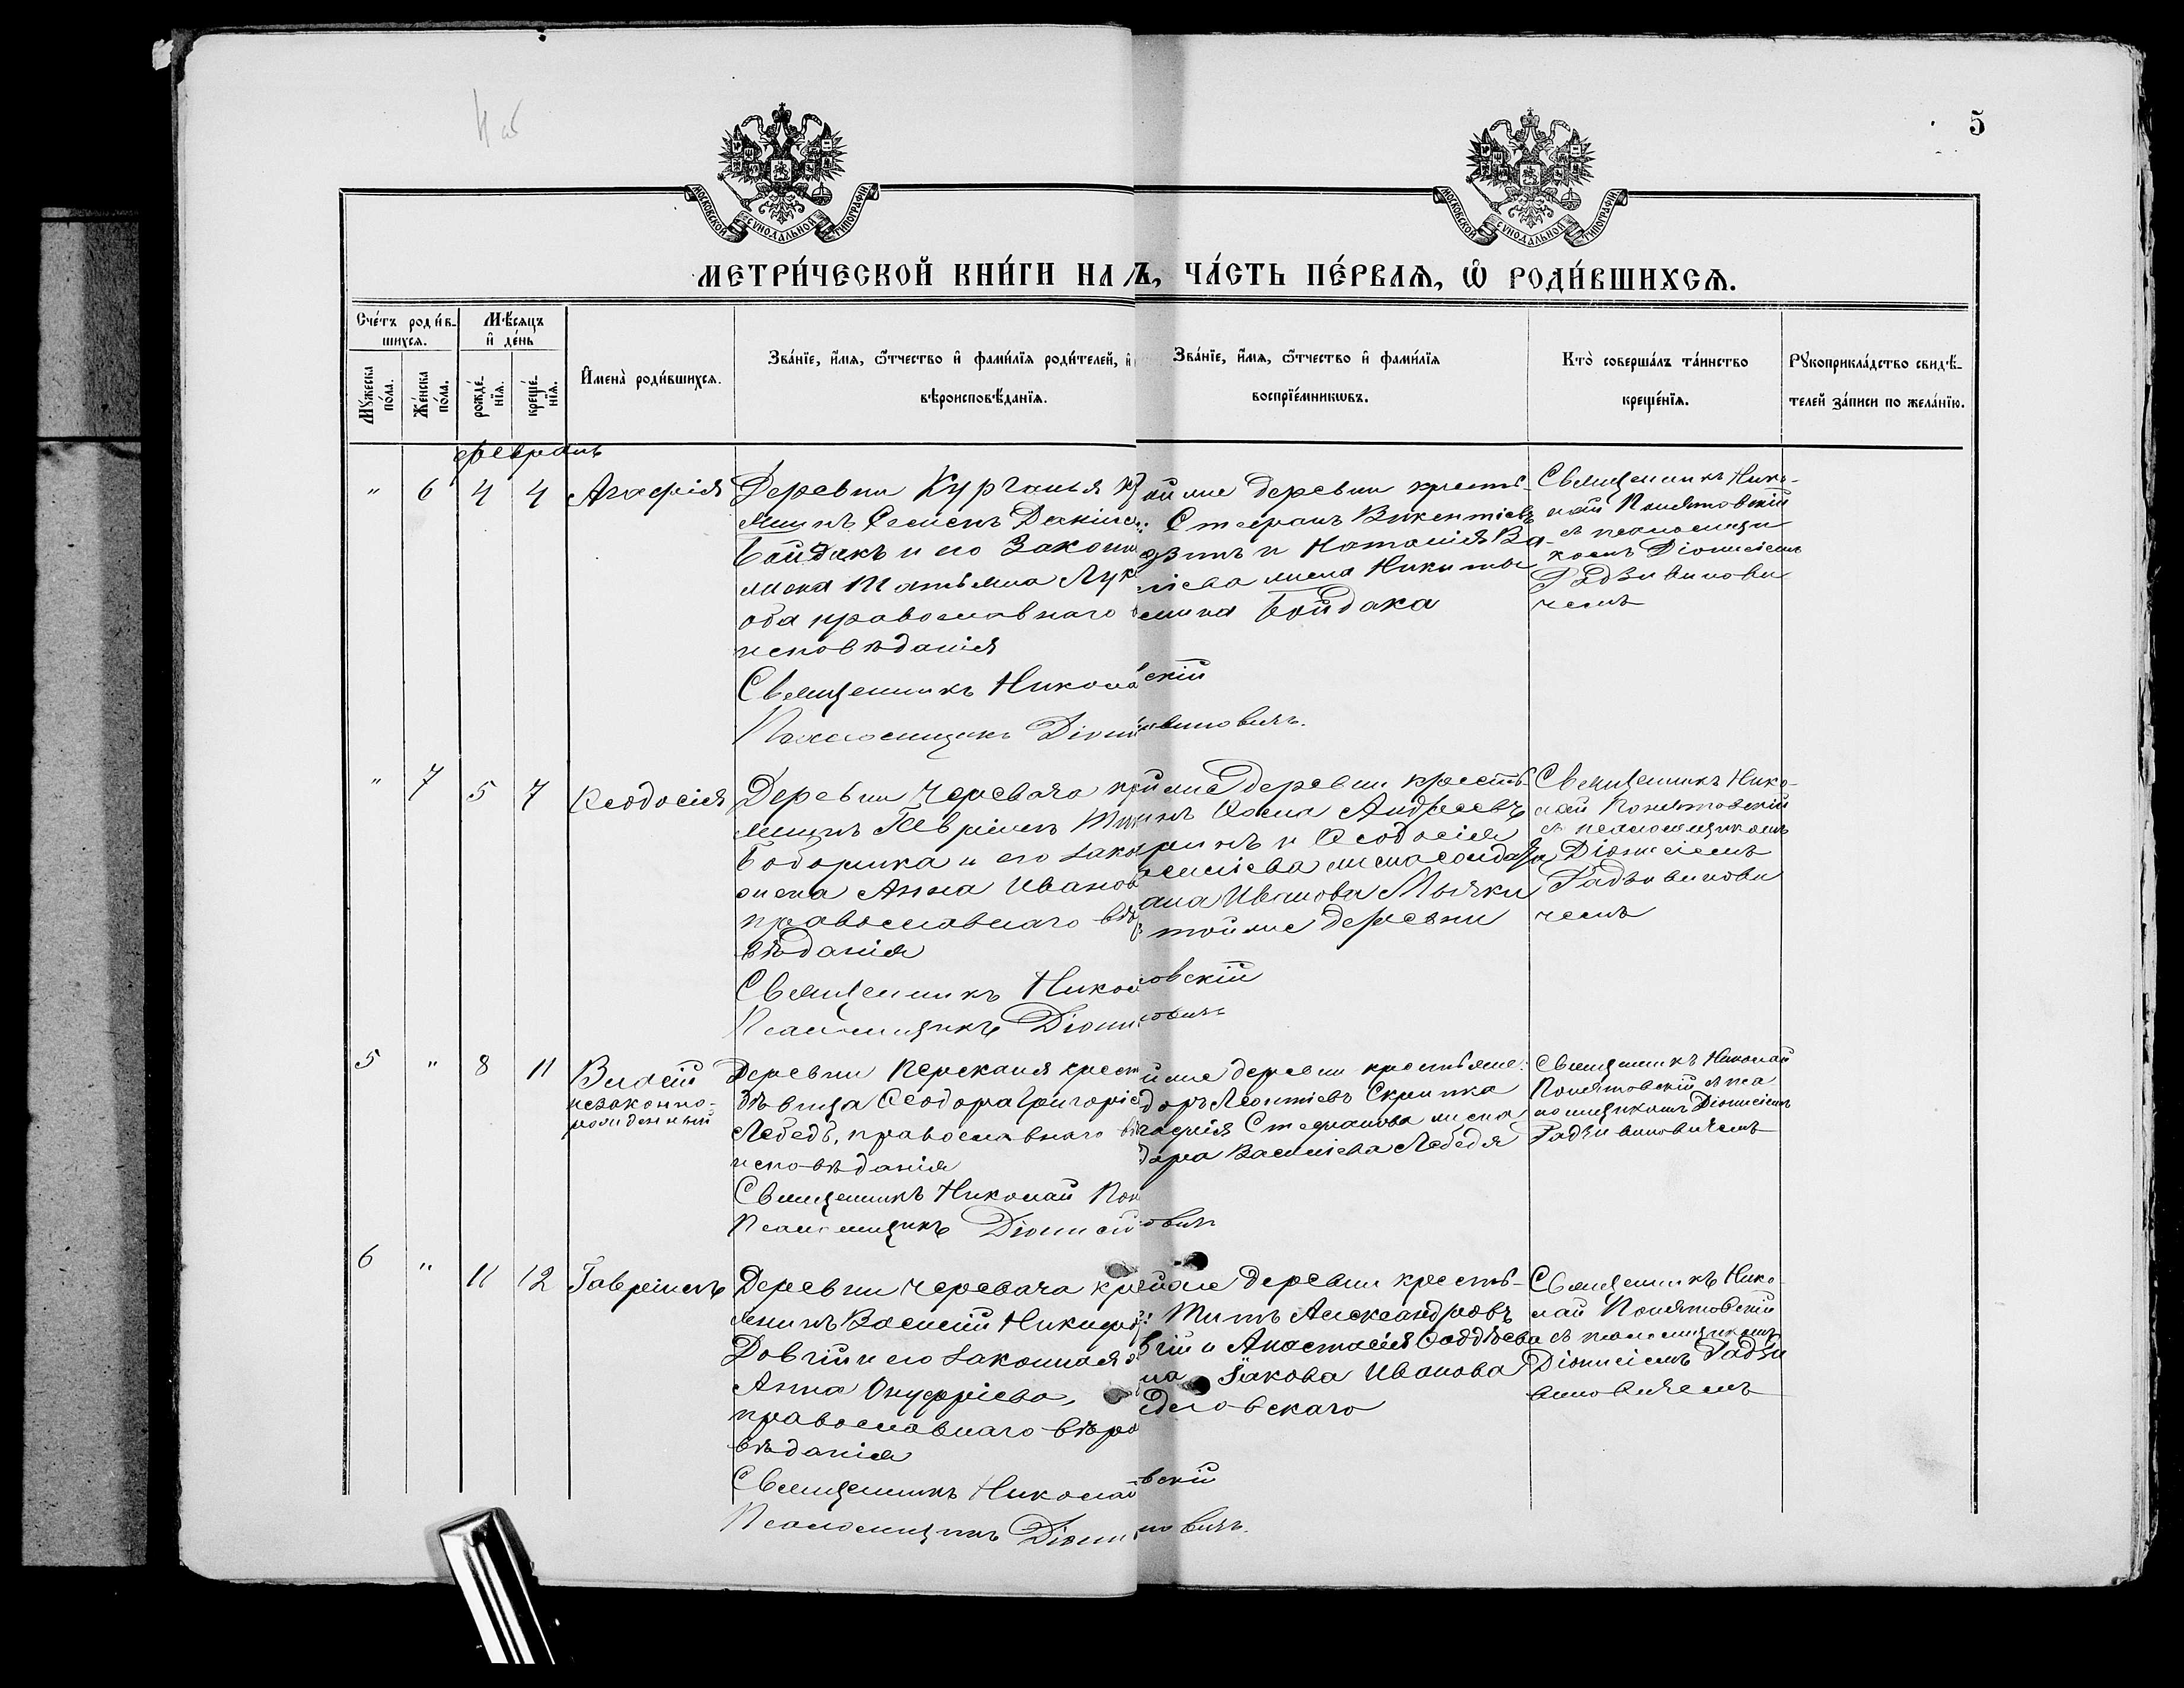 5
МОСКОВСКОЙ СУНОДАЛЬНОЙ ТИПОГРАФІИ.
МОСКОВСКОЙ СУНОДАЛЬНОЙ ТИПОГРАФІИ.
МЕТРИ́ЧЕСКОЙ КНИ́ГИ НА
Ъ, ЧА́СТЬ ПЕ́РВАѦ, Ѡ҆ РОДИ́ВШИХСѦ.
Сче́тъ роди́в-
шихсѧ.
Мꙋ́жеска по́ла.
Же́нска по́ла.
Мѣ́сѧцъ
и҆ де́нь
рожде́-нїѧ.
креще́-нїѧ.
И҆мена̀ роди́вшихсѧ.
Зва́нїе, и҆́мѧ, ѻ҆́тчество и҆ фами́лїѧ роди́телей, и҆
вѣроисповѣ́данїѧ.
Зва́нїе, и҆́мѧ, ѻ҆́тчество и҆ фами́лїѧ
воспрїе́мникѡвъ.
Кто̀ соверша́лъ та́инство
креще́нїѧ.
Рꙋкоприкла́дство свидѣ́-
телей за́писи по жела́нїю.
февраль
" 6 4 4 Агафія
Деревни Курганья
янинъ Семенъ
Бойдакъ и его закон
жена Татьяна Лук
оба православнаго
исповѣданія
Священникъ Никола
Псаломщикъ Діони
ойже деревни кресть-
Стефанъ Викентіевъ
и Наталія Ва-
ліева жена Никиты
Бойдака
скій
виновичъ.
Священникъ Нико-
лай Понятовскій
съ псаломщи
комъ Діонисіемъ
Радзивинови
чемъ
" 7 5 7 Ѳеодосія
Деревни Черевача кр
янинъ Гавріилъ
и его зако
жена Анна Иванов
православнаго вѣр
вѣданія
Священникъ Никол
Псаломщикъ Діони
ойже деревни кресть
нъ Ѳома Андреевъ
и Ѳеодосія
жена солдата
Иванова
тойже деревни
овскій
овичъ
Священникъ Нико
лай Понятовскій
съ псаломщикомъ
Діонисіемъ
Радзивинови
чемъ
5 " 8 11 Власій
незаконно-
рожденный
Деревни крест
дѣвица Ѳеодора Григоріе
Лебедь, православнаго вѣ
исповѣданія
Священникъ Николай Пон
Псаломщикъ Діонисій
йже деревни крестьяне:
доръ Леонтіевъ Скрипка
гафія Стефанова жена
дора Василіева Лебедя
овичъ
Священникъ Николай
Понятовскій съ пса
ломщикомъ Діонисіемъ
Радзивиновичемъ
6 " 11 12 Гавріилъ
Деревни Черевача кре
янинъ Василій Никифор
Довгій и его законная ж
Анна Онуфріева,
православнаго вѣро
вѣданія
Священникъ Николай
Псаломщикъ Діони
ойже деревни кресть-
Титъ Александровъ
гій и Анастасія Ѳаддѣева
на Іакова Иванова
вскій
новичъ.
Священникъ Нико
лай Понятовскій
съ псаломщикомъ
Діонисіемъ Радзи
виновичемъ